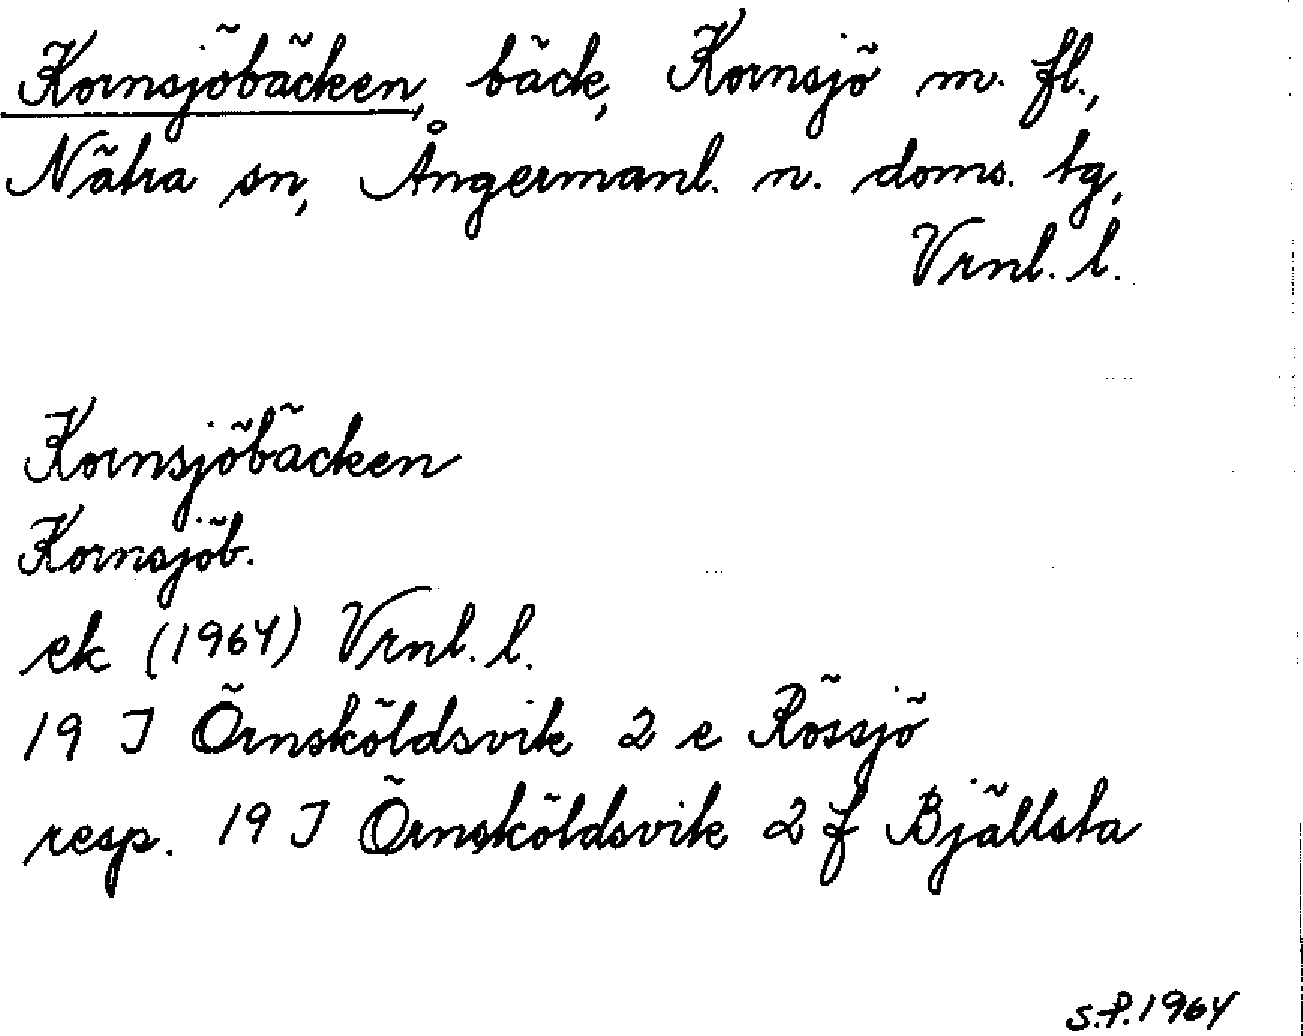 Kornsjöbäcken, bäck, Kornsjö m. fl.,
Nätra sn, Ångermanl. n. doms. tg,
Vrnl. l.
Kornsjöbäcken
Kornsjöb.
ek (1964) Vrnl. l.
19 J Örnsköldsvik 2 e Rössjö
resp. 19 J Örnsköldsvik 2 f Bjällsta
S.P. 1964